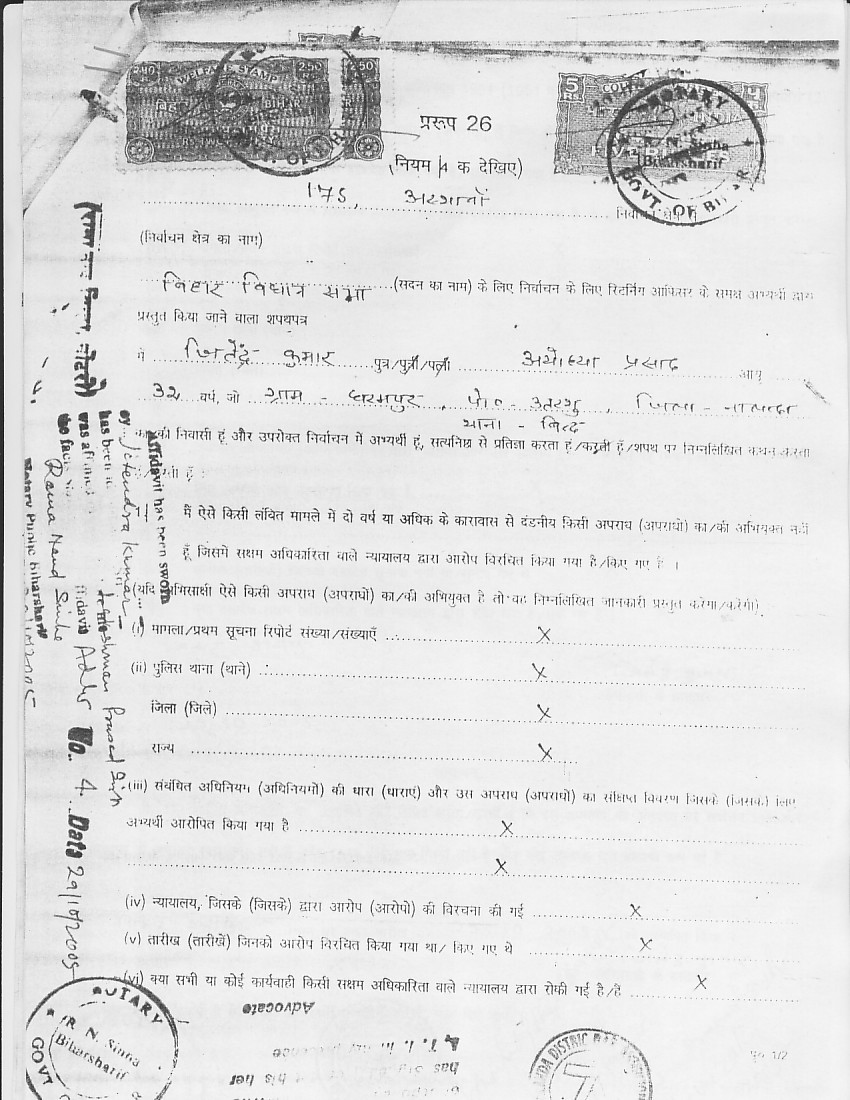 WELFARE STAMP
BIHAR
COURT
5 Rs.
NOTARY
R. N. Sinha
Biharsharif
GOVT. OF BIHAR
प्ररूप 26
(नियम 4 क देखिए)
175, अस्थावाँ निर्वाचन क्षेत्र
(निर्वाचन क्षेत्र का नाम)
बिहार विधान सभा (सदन का नाम) के लिए निर्वाचन के लिए रिटर्निंग आफिसर के समक्ष अभ्यर्थी द्वारा
प्रस्तुत किया जाने वाला शपथपत्र
मैं जितेंद्र कुमार पुत्र/पुत्री/पत्नी अयोध्या प्रसाद आयु
32 वर्ष, जो ग्राम - धरमपुर, पो० - उतरथु, जिला - नालन्दा
थाना - बिन्द
का/की निवासी हूं और उपरोक्त निर्वाचन में अभ्यर्थी हूं, सत्यनिष्ठा से प्रतिज्ञा करता हूं/करती हूँ/शपथ पर निम्नलिखित कथन करता
करती हूँ :
मैं ऐसे किसी लंबित मामले में दो वर्ष या अधिक के कारावास से दंडनीय किसी अपराध (अपराधों) का/की अभियुक्त नहीं
हूँ जिसमें सक्षम अधिकारिता वाले न्यायालय द्वारा आरोप विरचित किया गया है/किए गए हैं ।
(यदि अभिसाक्षी ऐसे किसी अपराध (अपराधों) का/की अभियुक्त है तो वह निम्नलिखित जानकारी प्रस्तुत करेगा/करेगी)
(i) मामला/प्रथम सूचना रिपोर्ट संख्या/संख्याएँ X
(ii) पुलिस थाना (थाने) X
जिला (जिले) X
राज्य X
(iii) संबंधित अधिनियम (अधिनियमों) की धारा (धाराएं) और उस अपराध (अपराधों) का संक्षिप्त विवरण जिसके (जिसके) लिए
अभ्यर्थी आरोपित किया गया है X
X
(iv) न्यायालय, जिसके (जिसके) द्वारा आरोप (आरोपों) की विरचना की गई X
(v) तारीख (तारीखें) जिनको आरोप विरचित किया गया था/ किए गए थे X
(vi) क्या सभी या कोई कार्यवाही किसी सक्षम अधिकारिता वाले न्यायालय द्वारा रोकी गई है/हैं X
Affidavit has been sworn
by Jitendra Kumar
has been
was
Rama Nand Sinha
Notary Public Biharsharif
No. 4 Date 29/10/2005
Advocate
has
his her
NOTARY
R. N. Sinha
Biharsharif
GOVT
DISTRICT BAR